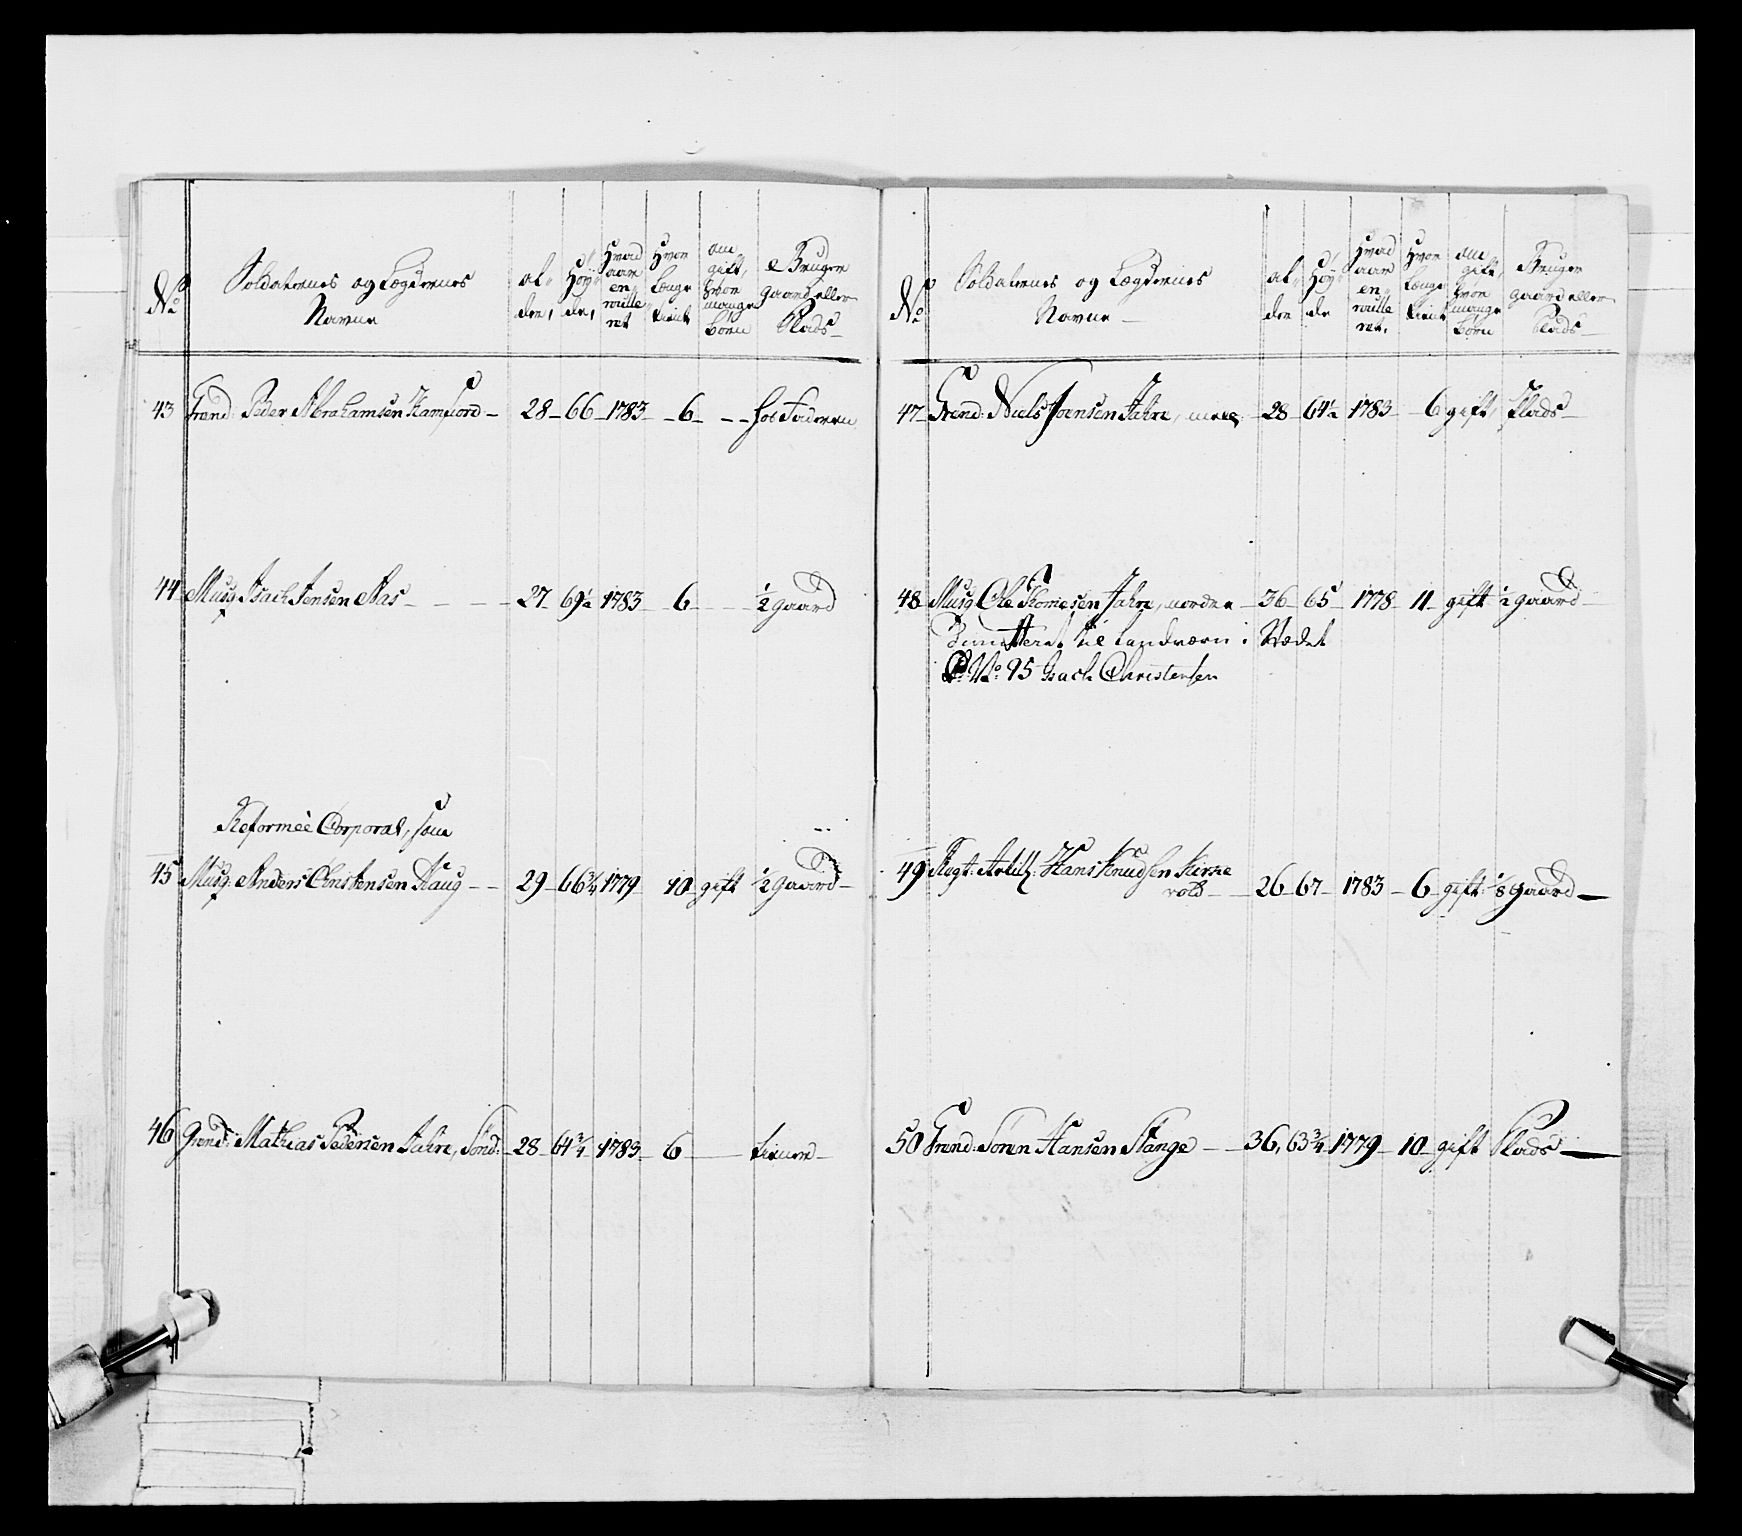 No
Soldaternes og Lægdernes
Navne
al-
der,
Höy-
de,
Hvad
aar
en-
roulle
ret
Hvor
længe
tient
om
gift,
hvor
mange
börn
Bruger
gaard eller
Plads
43 Grend: Peder Abrahamsen Kamfiord — 28 — 66 — 1783 — 6 — — hos Faderen
44 Musq: Isach Jensen Aas — — — 27 — 69½ 1783 — 6 — — ½ gaard
Reformée Corporal, som
45 Musq: Anders Christensen Haug — — 29 — 66¾ 1779 — 10 — gift ½ gaard —
46 Grend: Mathias Pedersen Jahre, Sönd: — 28 — 64¾ — 1783 — 6 — tiener —
No
Soldaternes og Lægdernes
Navne —
al-
der
Höy-
de
Hvad
aar
en-
roulle
ret.
Hvor
længe
tient
om
gift,
hvor
mange
börn
Bruger
gaard eller
Plads —
47 — Grend: Niels Joensen Jahre, — 28 — 64½ — 1783 — 6 gift, Plads —
48 Musq: Ole Thomesen Jahre, nordre — 36 — 65 — 1778 — 11 — gift ½ gaard —
til Landværn i Stædet
No. 95 Isach Christensen
49 Regt: Artill: Hans Knudsen Kirke
vold — — 26 — 67 — 1783 — 6 — gift: ⅛ gaard —
50 Grend: Sören Hansen Stange — — 36, 63¾ 1779 — 10 — gift Plads —